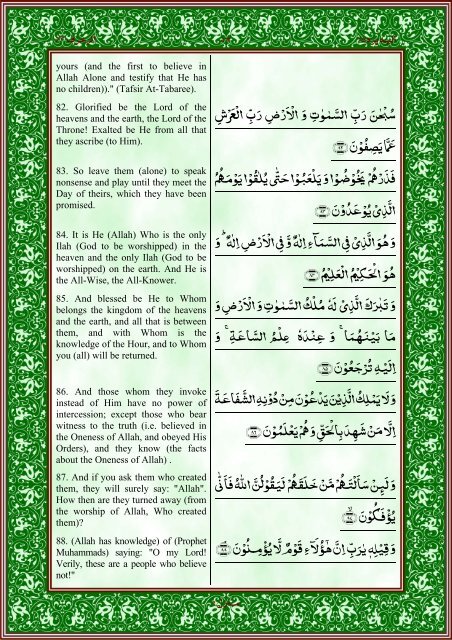 yours (and the first to believe in
Allah Alone and testify that He has
no children))." (Tafsir At-Tabaree).
82. Glorified be the Lord of the
heavens and the earth, the Lord of the
Throne! Exalted be He from all that
they ascribe (to Him).
سُبْحٰنَ رَبِّ السَّمٰوٰتِ وَ الْاَرْضِ رَبِّ الْعَرْشِ
عَمَّا يَصِفُوْنَ ﴿٨٢﴾
83. So leave them (alone) to speak
nonsense and play until they meet the
Day of theirs, which they have been
promised.
فَذَرْهُمْ يَخُوْضُوْا وَ يَلْعَبُوْا حَتّٰى يُلٰقُوْا يَوْمَهُمُ
الَّذِىْ يُوْعَدُوْنَ ﴿٨٣﴾
84. It is He (Allah) Who is the only
Ilah (God to be worshipped) in the
heaven and the only Ilah (God to be
worshipped) on the earth. And He is
the All-Wise, the All-Knower.
وَ هُوَ الَّذِىْ فِى السَّمَآءِ اِلٰهٌ وَّ فِى الْاَرْضِ اِلٰهٌ ؕ وَ
هُوَ الْحَكِيْمُ الْعَلِيْمُ ﴿٨٤﴾
85. And blessed be He to Whom
belongs the kingdom of the heavens
and the earth, and all that is between
them, and with Whom is the
knowledge of the Hour, and to Whom
you (all) will be returned.
وَ تَبٰرَكَ الَّذِىْ لَهٗ مُلْكُ السَّمٰوٰتِ وَ الْاَرْضِ وَ
مَا بَيْنَهُمَا ۚ وَ عِنْدَهٗ عِلْمُ السَّاعَةِ ۚ وَ
اِلَيْهِ تُرْجَعُوْنَ ﴿٨٥﴾
86. And those whom they invoke
instead of Him have no power of
intercession; except those who bear
witness to the truth (i.e. believed in
the Oneness of Allah, and obeyed His
Orders), and they know (the facts
about the Oneness of Allah) .
وَ لَا يَمْلِكُ الَّذِيْنَ يَدْعُوْنَ مِنْ دُوْنِهِ الشَّفَاعَةَ
اِلَّا مَنْ شَهِدَ بِالْحَقِّ وَ هُمْ يَعْلَمُوْنَ ﴿٨٦﴾
87. And if you ask them who created
them, they will surely say: "Allah".
How then are they turned away (from
the worship of Allah, Who created
them)?
وَ لَىِٕنْ سَاَلْتَهُمْ مَّنْ خَلَقَهُمْ لَيَقُوْلُنَّ اللّٰهُ فَاَنّٰى
يُؤْفَكُوْنَ ۙ﴿٨٧﴾
88. (Allah has knowledge) of (Prophet
Muhammads) saying: "O my Lord!
Verily, these are a people who believe
not!"
وَ قِيْلِهٖ يٰرَبِّ اِنَّ هٰۤؤُلَآءِ قَوْمٌ لَّا يُؤْمِنُوْنَ ﴿٨٨﴾